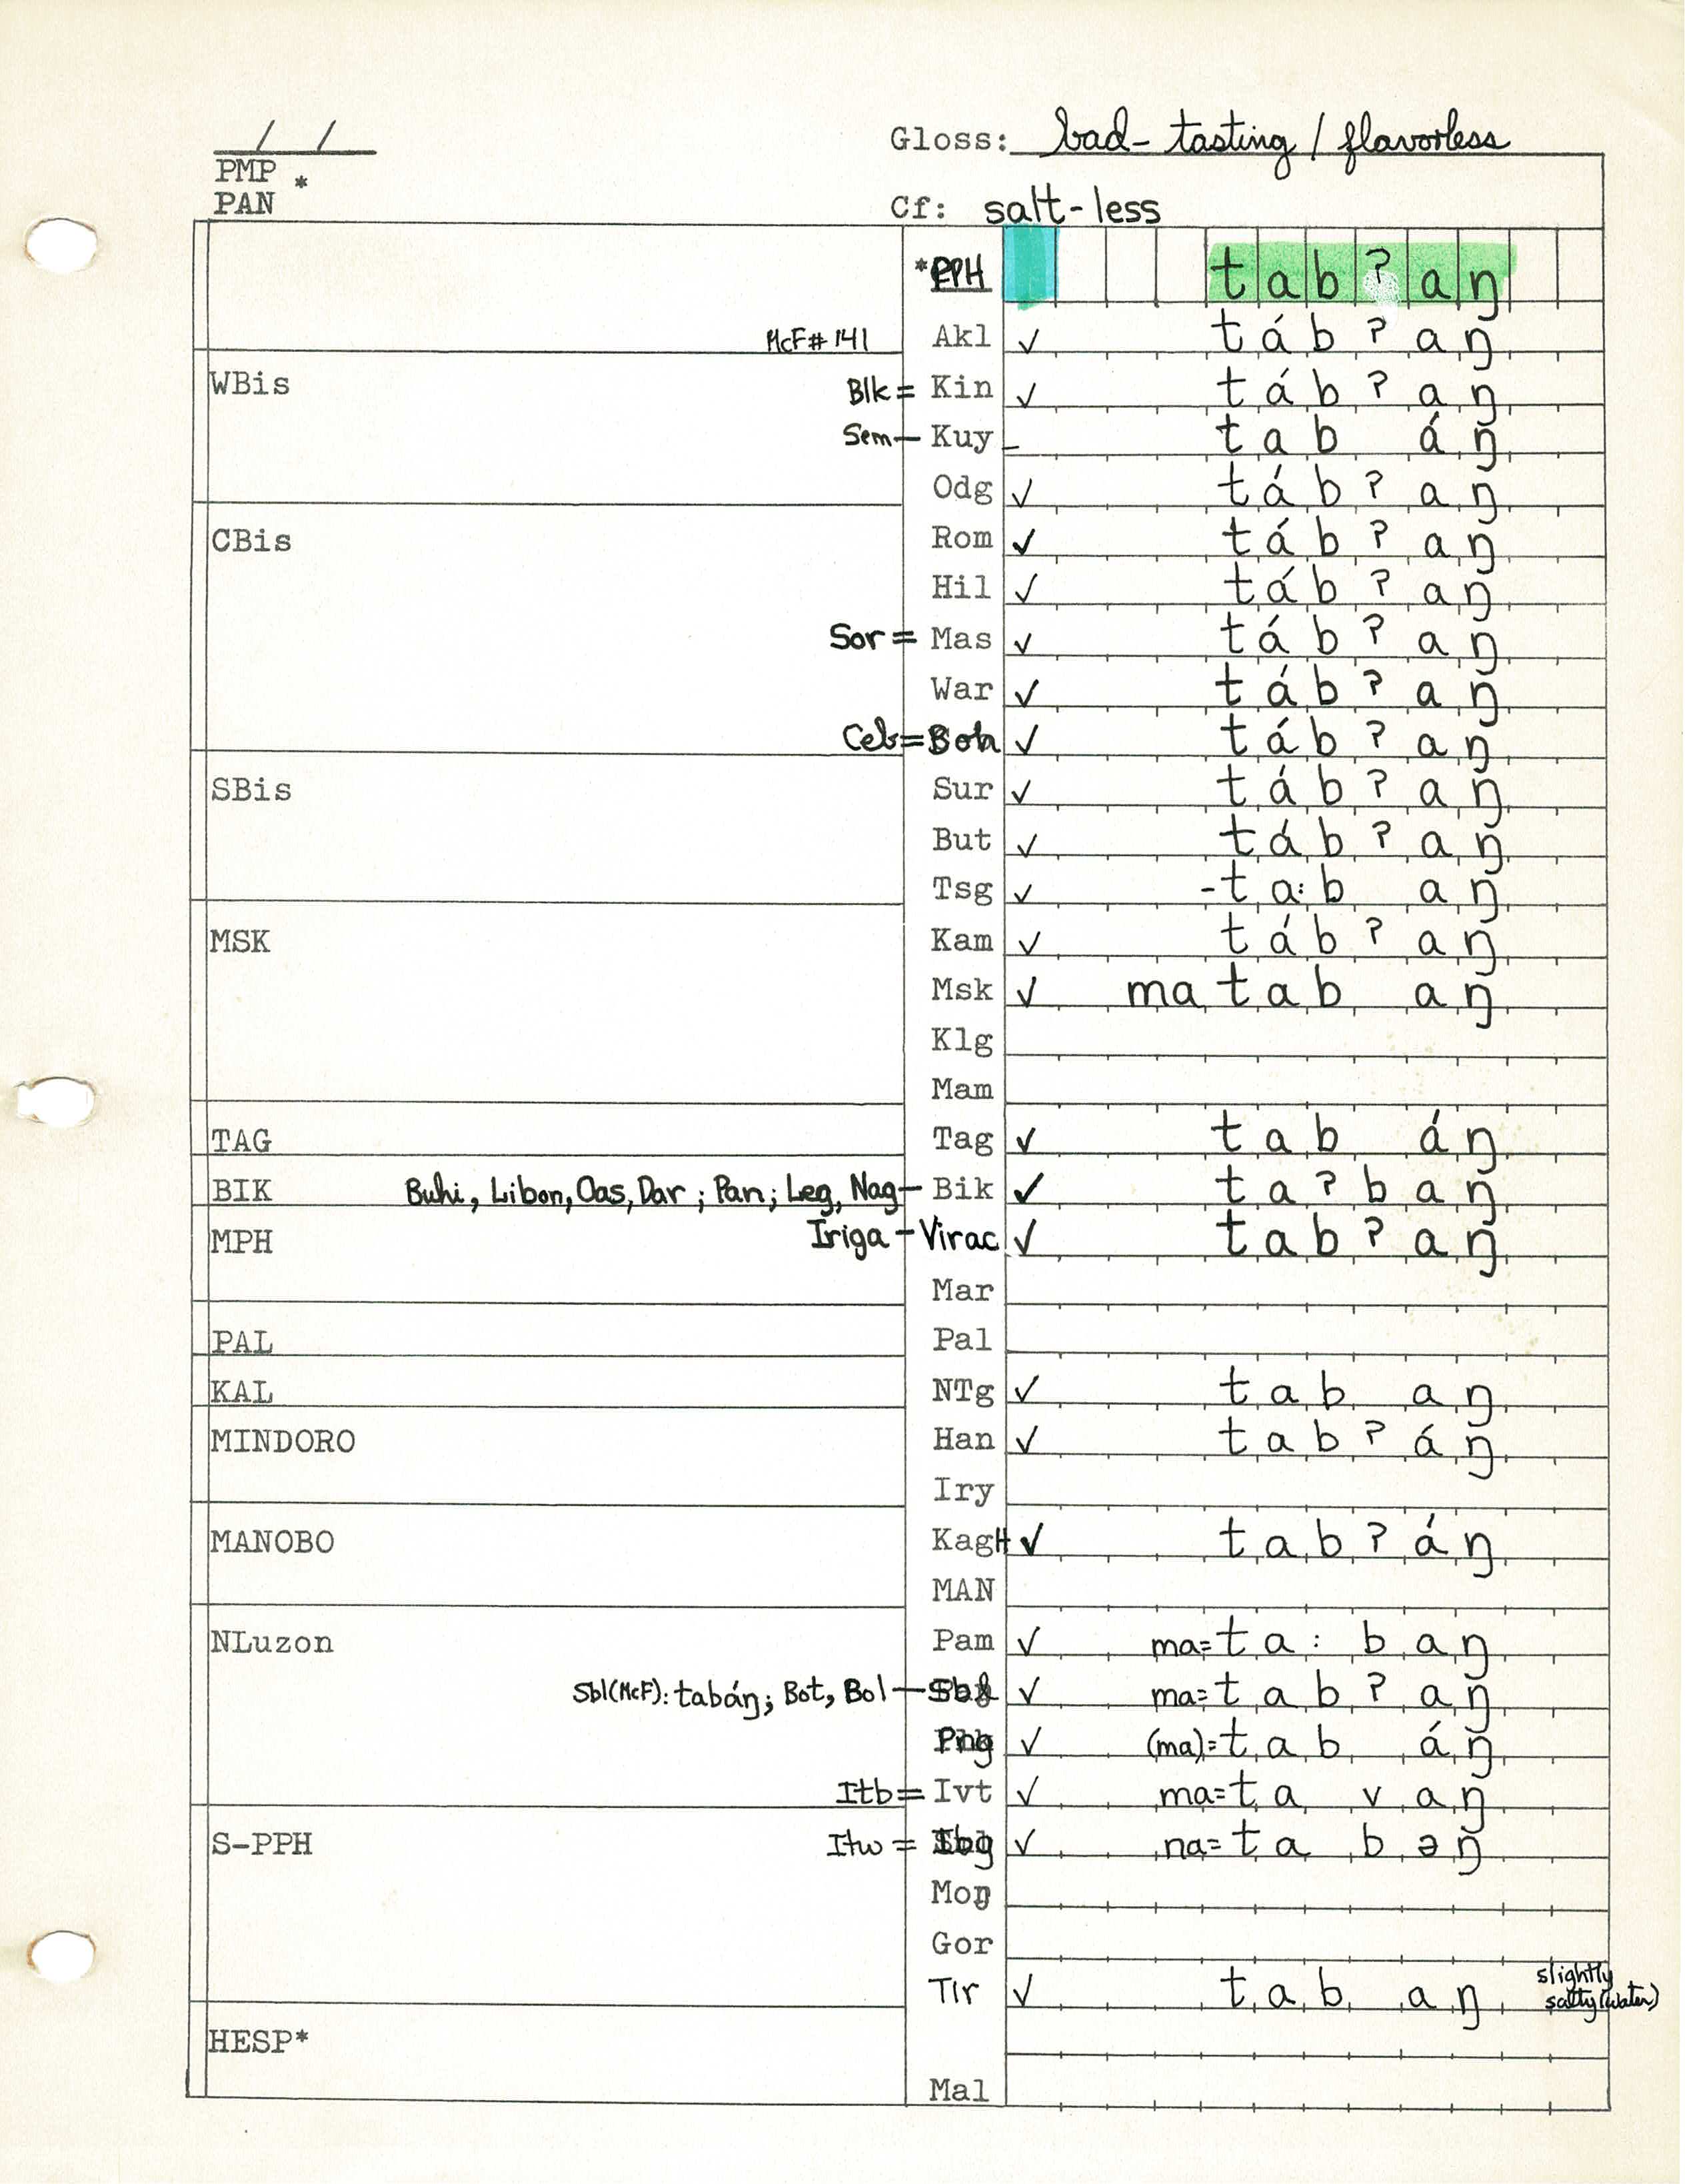 / /
Gloss: bad-tasting / flavorless
PMP *
PAN
Cf: salt-less
*PPH tabʔaŋ
McF# 141 Akl ✓ tábʔaŋ
WBis Blk = Kin ✓ tábʔaŋ
Sem — Kuy – tab áŋ
Odg ✓ tábʔaŋ
CBis Rom ✓ tábʔaŋ
Hil ✓ tábʔaŋ
Sor = Mas ✓ tábʔaŋ
War ✓ tábʔaŋ
Ceb = Boh ✓ tábʔaŋ
SBis Sur ✓ tábʔaŋ
But ✓ tábʔaŋ
Tsg ✓ -ta:b aŋ
MSK Kam ✓ tábʔaŋ
Msk ✓ matab aŋ
Klg
Mam
TAG Tag ✓ tab áŋ
BIK Buhi, Libon, Oas, Dar ; Pan; Leg, Nag — Bik ✓ taʔbaŋ
MPH Iriga — Virac ✓ tabʔaŋ
Mar
PAL Pal
KAL NTg ✓ tab aŋ
MINDORO Han ✓ tabʔáŋ
Iry
MANOBO KagH ✓ tabʔáŋ
MAN
NLuzon Pam ✓ ma=ta: baŋ
Sbl(McF): tabáŋ; Bot, Bol — Sbl ✓ ma=tabʔaŋ
Png ✓ (ma)=tab áŋ
Itb = Ivt ✓ ma=ta vaŋ
S-PPH Itw = Ibg ✓ na=ta bəŋ
Moŋ
Gor
Tlr ✓ tab aŋ slightly
salty (water)
HESP*
Mal